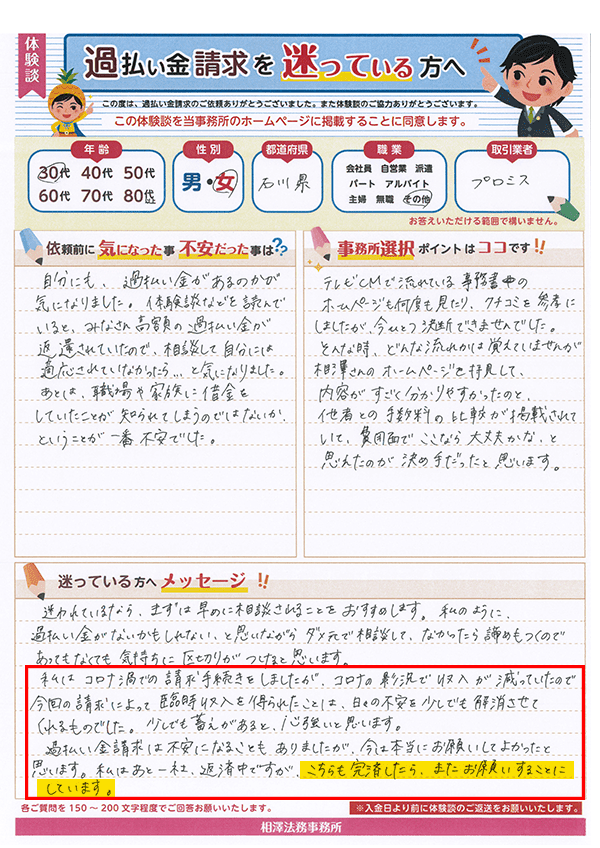 体験談
過払い金請求を迷っている方へ
この度は、過払い金請求のご依頼ありがとうございました。また体験談のご協力ありがとうございます。
この体験談を当事務所のホームページに掲載することに同意します。
年齢
30代 40代 50代
60代 70代 80代以上
性別
男・女
都道府県
石川県
職業
会社員 自営業 派遣
パート アルバイト
主婦 無職 その他
取引業者
プロミス
お答えいただける範囲で構いません。
依頼前に気になった事 不安だった事は??
自分にも、過払い金があるのかが
気になりました。体験談などを読んで
いると、みなさん高額の過払い金が
返還されていたので、相談して自分には
適応されていなかったら…と気になりました。
あとは、職場や家族に借金を
していたことが知られてしまうのではないか、
ということが一番不安でした。
事務所選択ポイントはココです!!
テレビCMで流れている事務書の
ホームページも何度も見たり、クチコミを参考に
しましたが、今ひとつ決断できませんでした。
そんな時、どんな流れかは覚えていませんが
相澤さんのホームページを拝見して、
内容がすごく分かりやすかったのと、
他者との手数料の比較が掲載されて
いて、費用面でここなら大丈夫かな、と
思えたのが決め手だったと思います。
迷っている方へメッセージ!!
迷われているなら、まずは早めに相談されることをおすすめします。私のように、
過払い金がないかもしれない、と思いながらダメ元で相談して、なかったら諦めもつくので
あってもなくても気持ちに区切りがつけると思います。
私はコロナ渦での請求手続きをしましたが、コロナの影況で収入が減っていたので
今回の請求によって臨時収入を得られたことは、日々の不安を少しでも解消させて
くれるものでした。少しでも蓄えがあると、心強いと思います。
過払い金請求は不安になることもありましたが、今は本当にお願いしてよかったと
思います。私はあと一社、返済中ですが、こちらも完済したら、またお願いすることに
しています。
各ご質問を150～200文字程度でご回答お願いいたします。
※入金日より前に体験談のご返送をお願いいたします。
相澤法務事務所